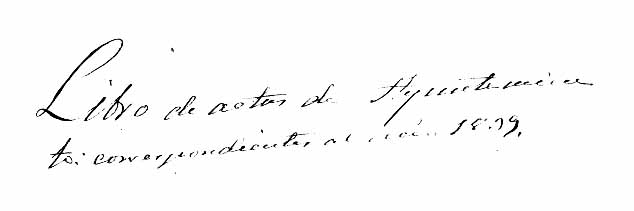 Libro de actas de Ayuntamien
to: correspondientes al año 1839.